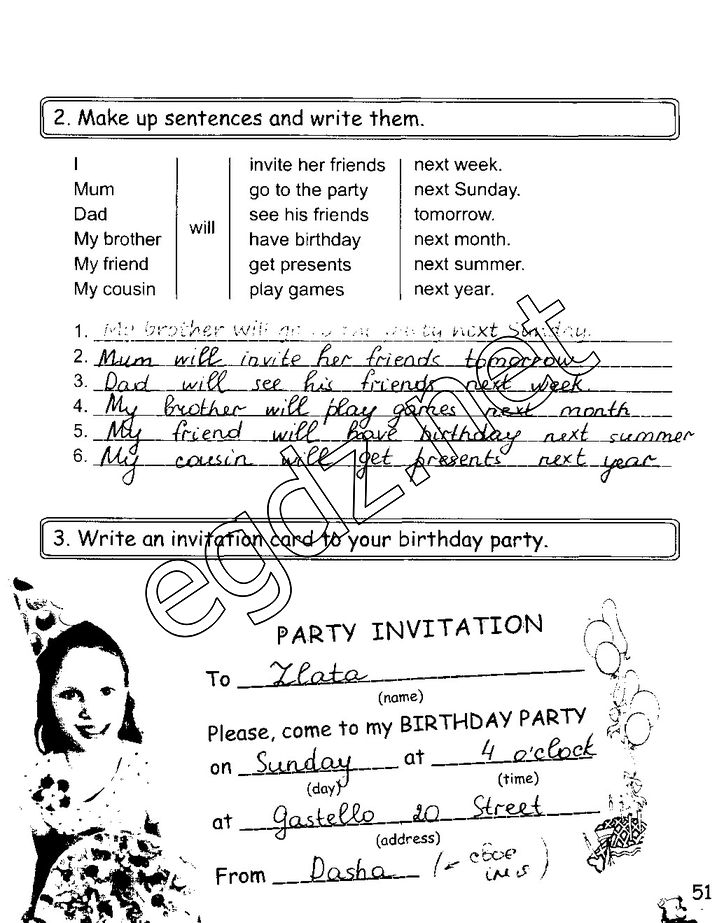 2. Make up sentences and write them.
I will invite her friends next week.
Mum go to the party next Sunday.
Dad see his friends tomorrow.
My brother have birthday next month.
My friend get presents next summer.
My cousin play games next year.
1. My brother will go to the party next Sunday.
2. Mum will invite her friends tomorrow
3. Dad will see his friends next week.
4. My brother will play games next month
5. My friend will have birthday next summer
6. My cousin will get presents next year
egdz.net
3. Write an invitation card to your birthday party.
PARTY INVITATION
To Zlata
(name)
Please, come to my BIRTHDAY PARTY
on Sunday at 4 o'clock
(day) (time)
at Gastello 20 Street
(address)
From Dasha (- своє ім'я)
51